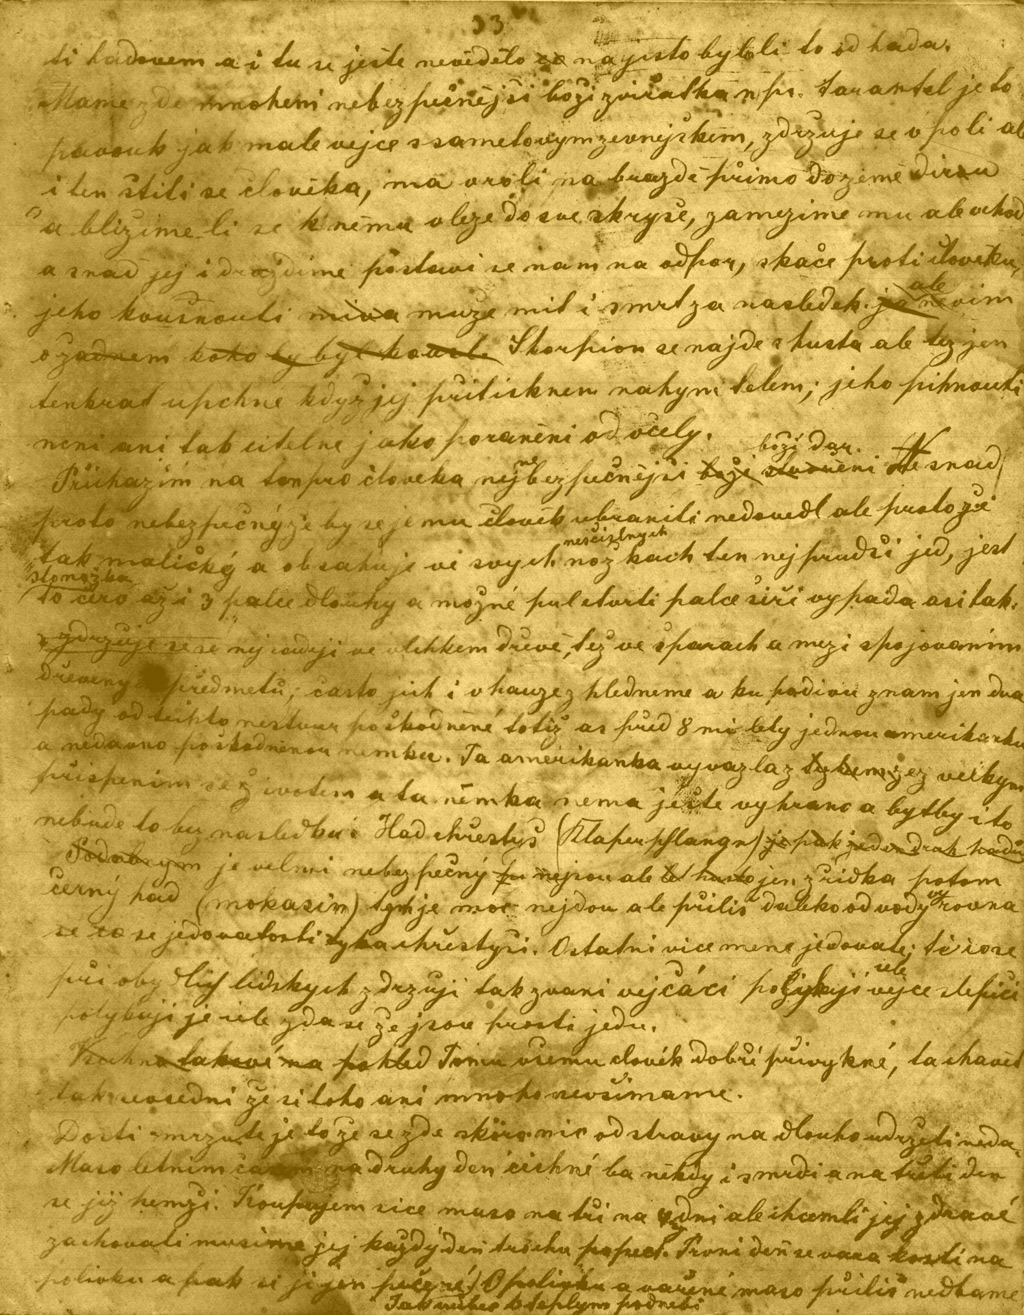 33
ti hadovem a i tu se ješte nevědělo na jisto bylo li to od hada.
Mame zde mnohem nebezpečnější boží zviřatka npr. Tarantel je to
pavouk jak male vejce s sametovym zevnějškem, zdržuje se v poli al
i ten štiti se člověka, ma v roli na brazdě přimo do země diru
a bližime li se k němu vleze do sve skryše, zamezime mu ale vchod
a snad jej i draždime postavi se nam na odpor, skače proti človeku,
jeho koušnouti miva muže mit i smrt za nasledek. ale nevim
o žadnem koho by byl kousl. Skorpion se najde zhusta ale tež jen
tenkrat upichne když jej přitisknem nahym tělem; jeho pihnouti
neni ani tak citelne jako poraněni od včely.
boží dar.
Přichazím na ten pro človeka nejnebezpečnější boži stvořeni Ne snad
proto nebezpečný že by se jemu člověk ubraniti nedovedl ale proto že
tak maličký a obsahuje ve svych nesčislnych nožkach ten nejprudši jed, jest
stonožka
to až i 3 palce dlouhy a možné pul čtvrti palce šiři vypada asi tak.
zdržuje se nejraději ve vlhkem dřevě, tež ve sparach a mezi spojovanim
dřeveny předmetů, často jich i v hauze zhledneme a ku podivu znam jen dva
pady od techto nestvur poškodněné totiž as před 8 mi lety jednou amerikanku
a nedavno poškodněnou němku. Ta amerikanka vyvazla z velkym
přispenim se životem a ta němka nema ješte vyhrano a byt by i to
nebude to bez nasledku. Had chřestyš (Klaperschlange) je pak jeden druh hadů
Podobnym je velmi nebezpečný nejsou ale tak husto jen zřidka potom
černý had (mokasin) tech je moc nejdou ale příliš daleko od vody rovna
se co se jedovatosti tyka chřestyši. Ostatni vice mene jedovate; ti co se
při obydlich lidskych zdržuji tak zvani vejčáci polykaji cele vejce slepiči
polykuji je cele zda se že jsou prosti jedu.
takové na pohled Tomu všemu človik dobři přivykné, ta chavet
tak vsedni že si toho ani mnoho nevšimame.
Dosti mrzute je to že se zde skoro nic od stravy na dlouho udržeti neda.
Maso letnim časem na druhy den čichné ba někdy i smrdi a na třeti den
se již hemzi. Koupujem sice maso na tři na dni ale chcemli jej zdravé
zachovati musime jej každý den trochu popect. Prvni den se vaza kosti na
polivku a pak se ji jen pečené) O polivku a vařené maso příliš nedbame
Jak vubec k teplym podnebi